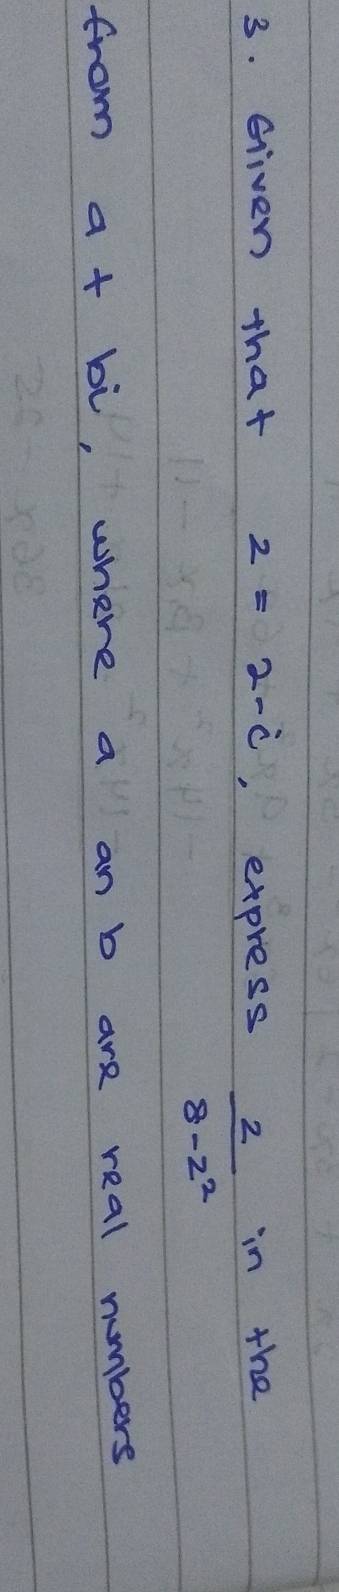 3. Given that z = 2-i, express z/8-z² in the
from a + bi, where a an b are real numbers